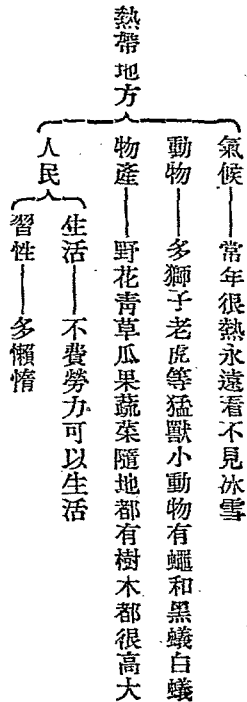 熱帶地方
氣候——常年很熱永遠看不見冰雪
動物——多獅子老虎等猛獸小動物有蠅和黑蟻白蟻
物產——野花靑草瓜果蔬菜隨地都有樹木都很高大
人民
生活——不費勞力可以生活
習性——多懶惰